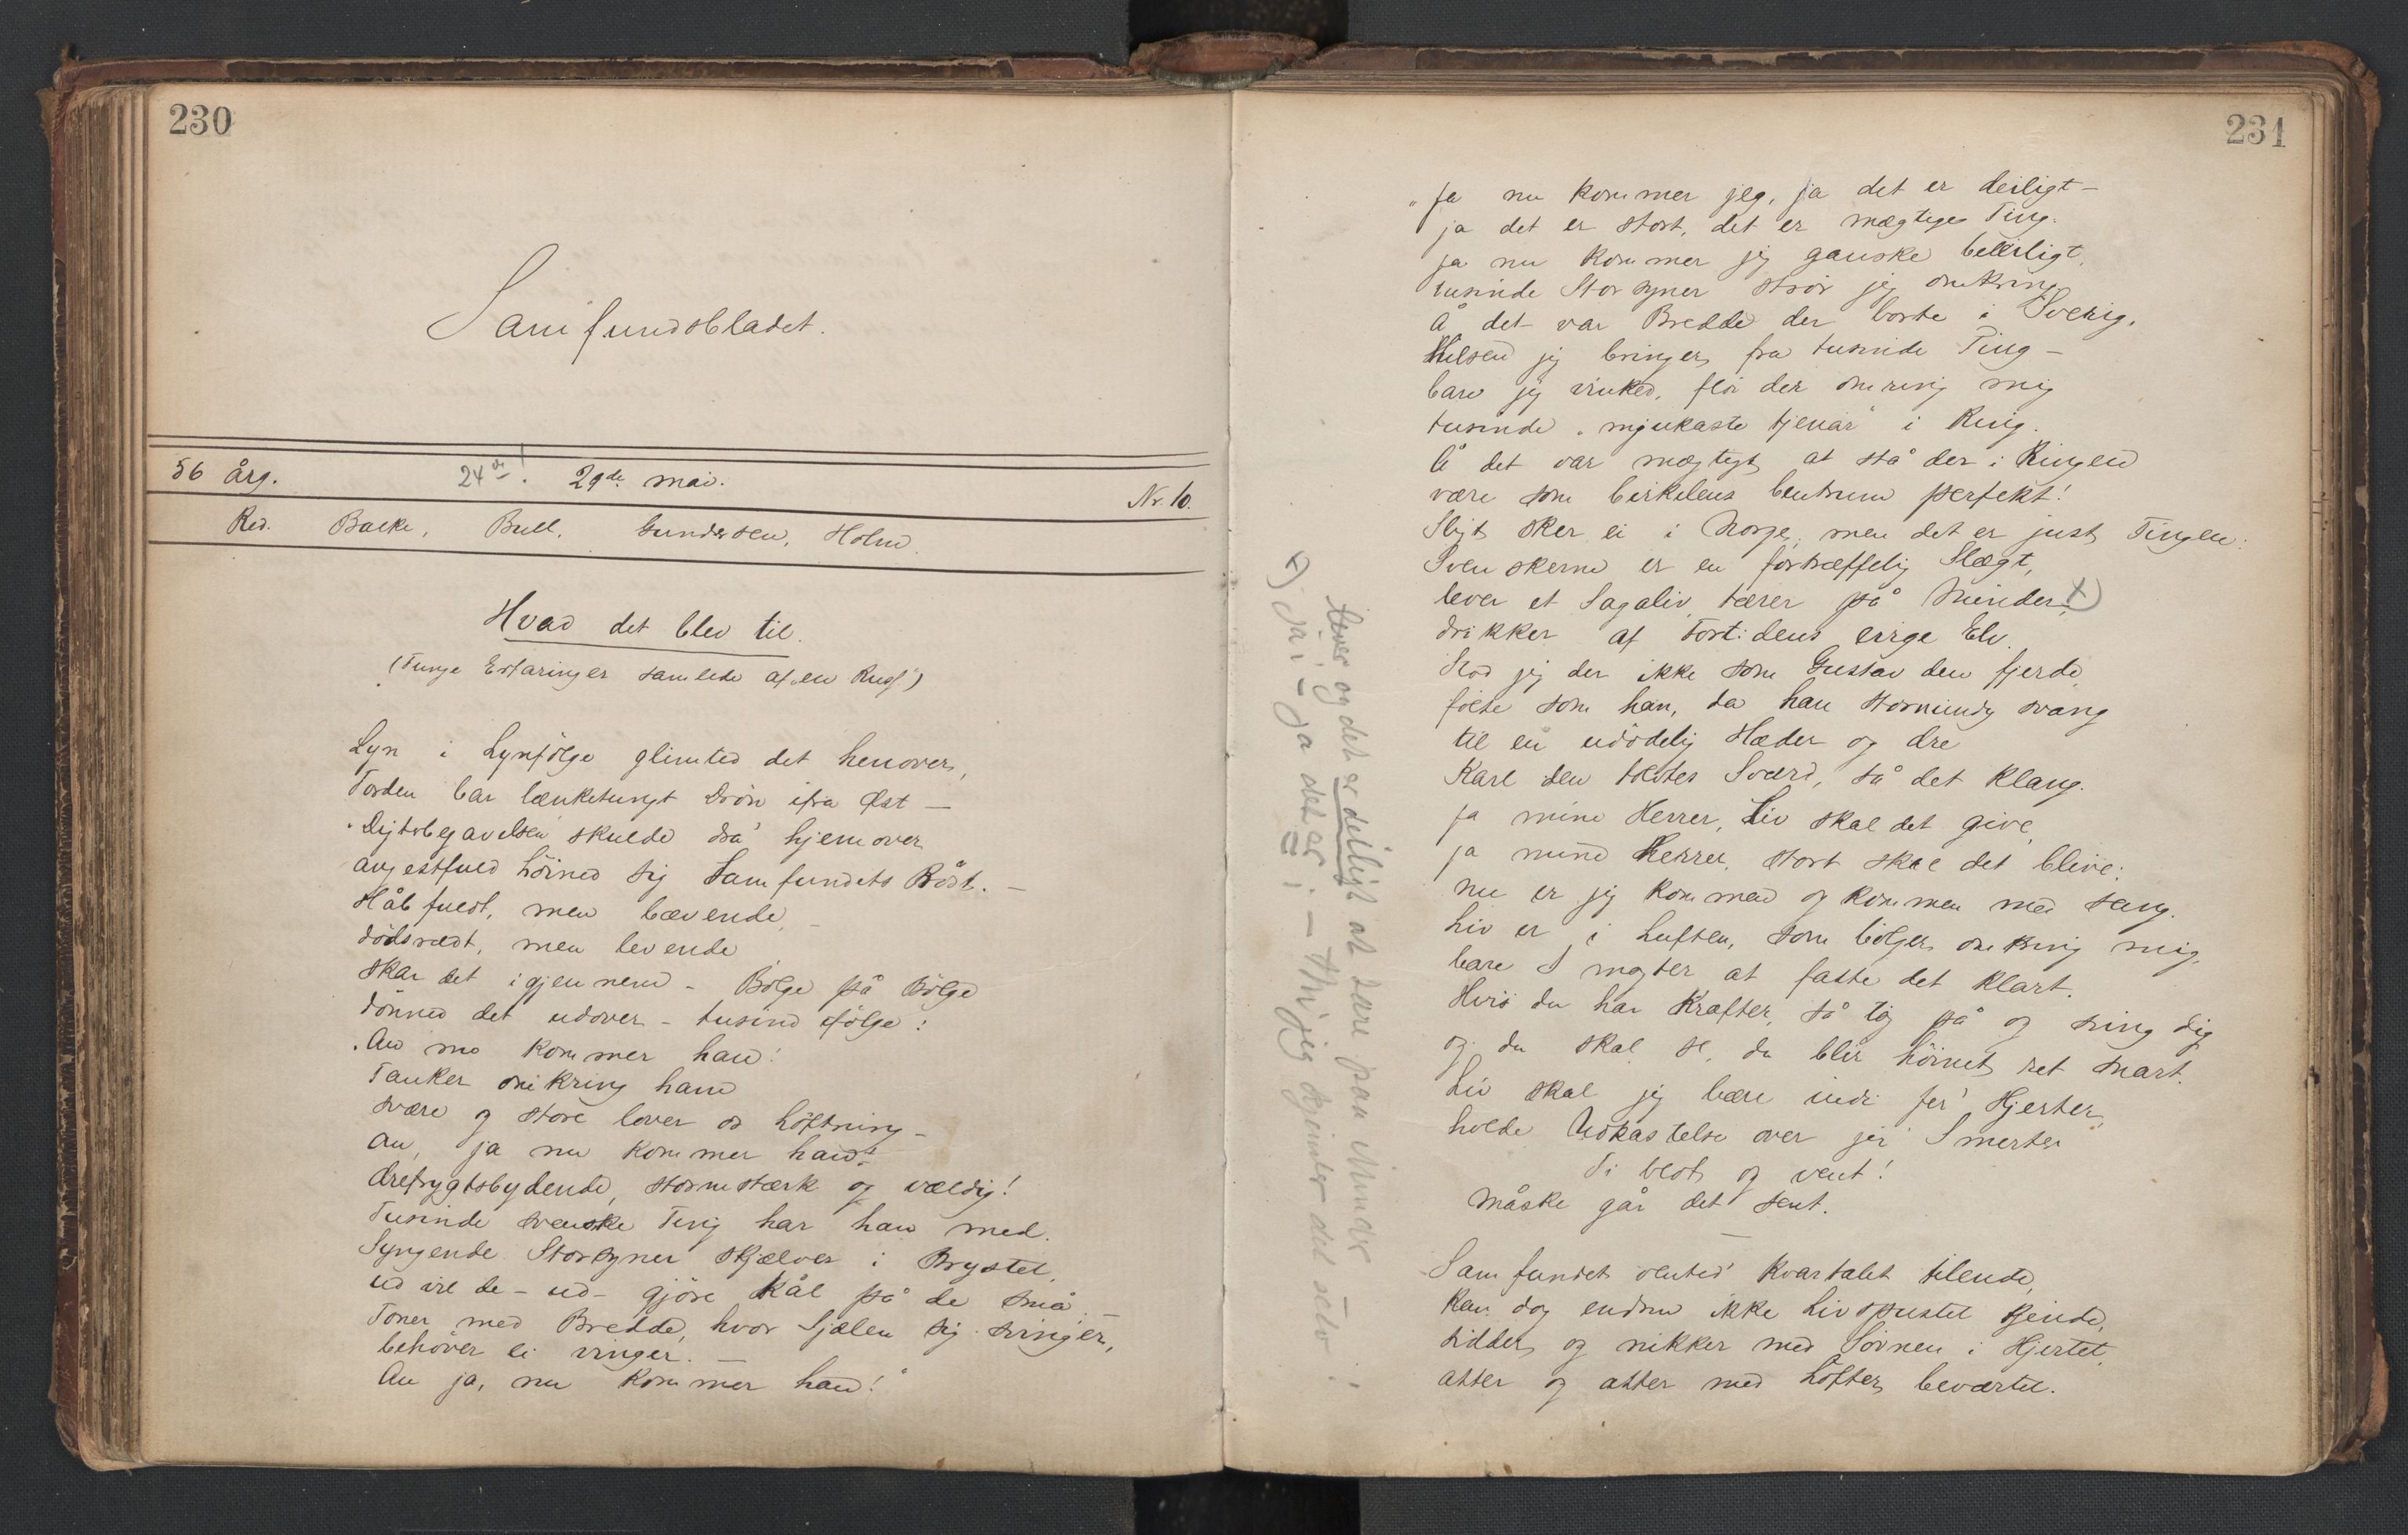 230
Samfundsbladet.
56 årg. 24de! 29de mai. Nr. 10.
Red. Backe, Bull, Gundersen, Holm.
Hvad det blev til.
(Tunge Erfaringer samlede af en Rusf")
Lyn i Lynfölge glimted det henover,
Torden bar lænketungt Drön ifra Øst —
"Digtsbegavelsen" skulde dra' hjemover
angestfuld hörned sig Samfundets Röst. —
Håbfuldt, men bævende, —
dödsrædt, men levende
skar det igjennem - Bölge på Bölge
dönned det udover - tusind ifölge:
"Au no kommer han!
Tanker omkring ham
svære og store lover os Löftning —
au, ja nu kommer han!
Ærefrygtsbydende, stormstærk og vældig!
Tusinde svenske Ting har han med.
Syngende Storsyner skjælver i Brystet,
ud vil de - ud - gjöre kål på de små. —
Toner med Bredde, hvor Sjælen sig svinger,
behöver ei vinger. —
Au ja, nu kommer han!"
231
"Ja nu kommer jeg, ja det er deiligt —
ja det er stort, det er mægtige Ting.
ja nu kommer jeg ganske beleiligt,
tusinde Storsyner strör jeg omkring
Å det var Bredde der borte i Sverig,
Hilsen jeg bringer fra tusinde Ting —
bare jeg vinked, flöi der omring mig
tusinde "mjukaste tjenar" i Ring.
Å det var mægtigt at stå der i Ringen
være som Cirkelens Centrum perfekt!
Sligt sker ei i Norge, men det er just Tingen:
Svenskerne er en fortræffelig Slægt,
lever et Sagaliv, tærer på Minder, x)
drikker af Fortidens evige Elv.
Stod jeg der ikke som Gustav den fjerde,
fölte som han, da han stormundig svang
til en udödelig Hæder og Ære
Karl den tolvtes Sværd, så det klang.
Ja mine Herrer, Liv skal det give,
ja mine Herrer, stort skal det blive;
nu er jeg kommen og kommen med Sang.
Liv er i Luften, som bölger omkring mig,
bare I mægter at fatte det klart.
Hvis du har Kræfter, så tag på og sving dig
og du skal se, du blir hörnet ret snart.
Liv skal jeg bære ind i jer' Hjerter,
holde Udkastelse over jer' Smerter
Ti blot og vent!
måske går det sent.
—
Samfundet vented' Kvartalet tilende,
kan dog endnu ikke Livspustet kjende,
sidder og nikker med Sövnen i Hjertet,
atter og atter med Löfter beværtet.
x) ja! — ja det er! — thi jeg kjender det selv!
lever og det er deiligt at tære paa Minder —